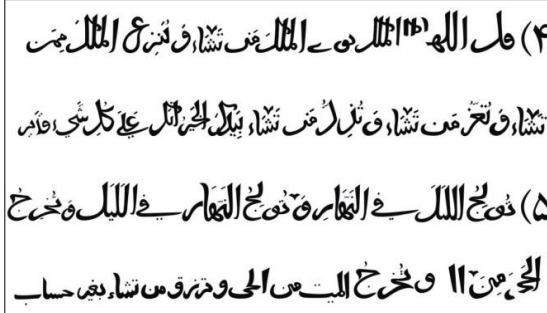 ۴) قل اللهم الملك توے الملك من تشاء و تنزع الملك ممن
تشاء و تعز من تشاء و تذل من تشاء بيدك الخير انك علے كل شيء قدير
۵) تولج الليل في النهار و تولج النهار في الليل و تخرج
الحي من و تخرج الميت من الحى و ترزق من تشاء بغير حساب